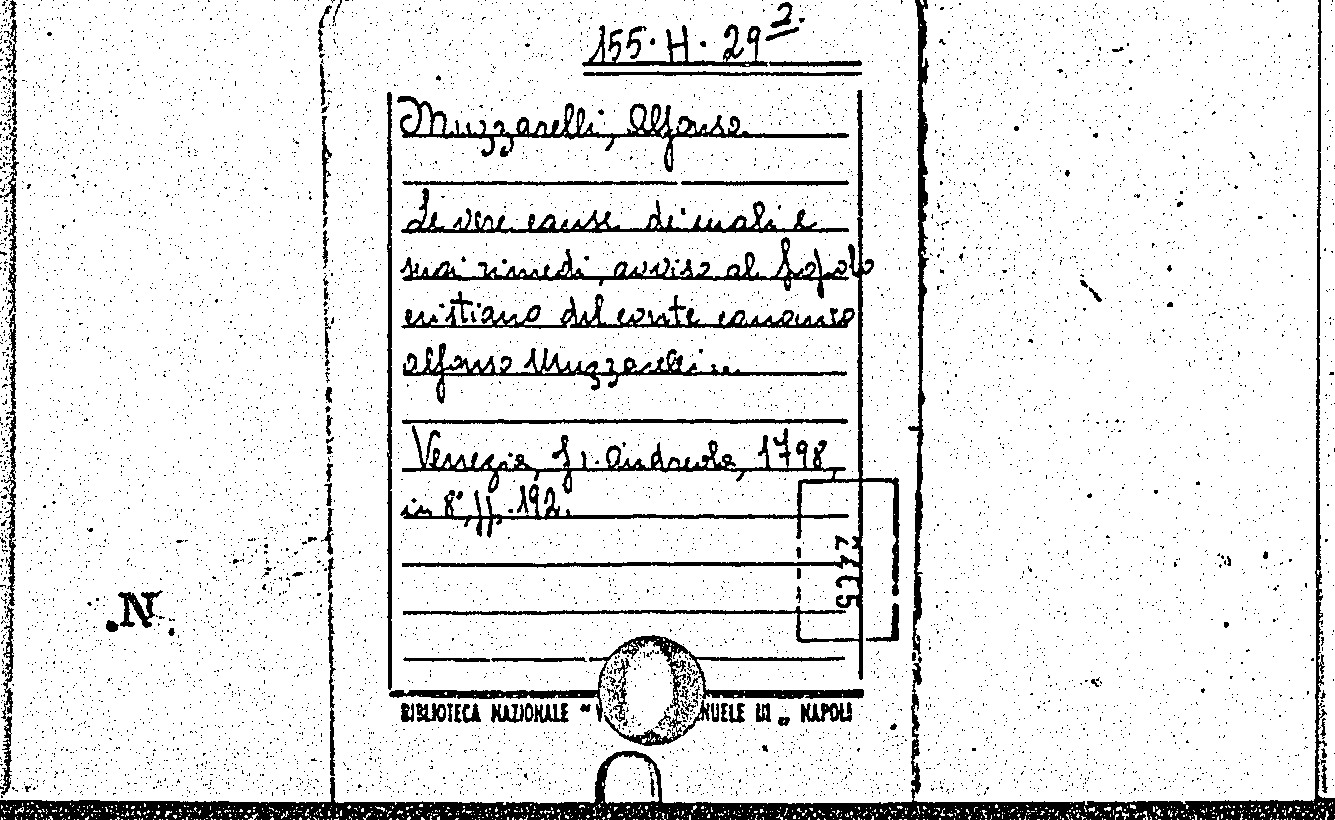 155. H. 29 2.
Muzzarelli, Alfonso
Le vere cause dei mali e
suoi rimedi, avviso al popolo
cristiano del conte canonico
Alfonso Muzzarelli ...
Venezia, Fr. Andreola, 1798,
in 8°, pp. 192.
.N.
BIBLIOTECA NAZIONALE " V NUELE III „ NAPOLI